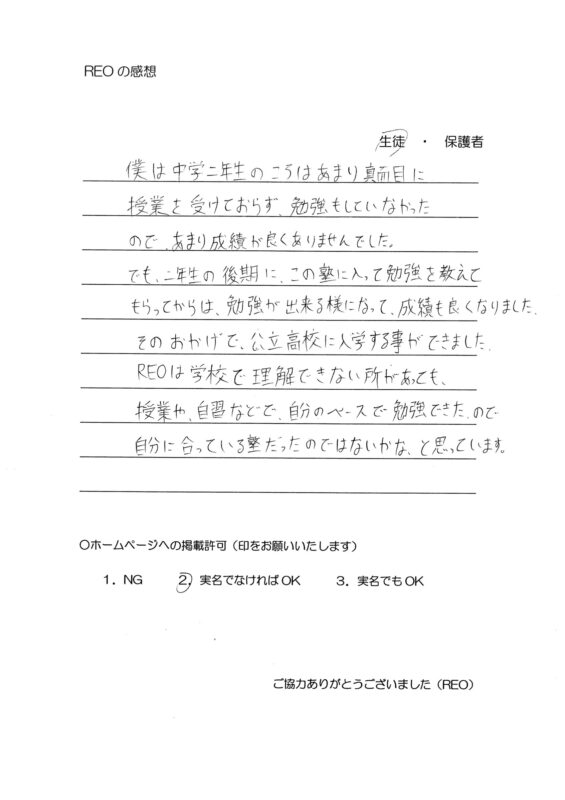 REOの感想
生徒 ・ 保護者
僕は中学二年生のころはあまり真面目に
授業を受けておらず、勉強もしていなかった
ので、あまり成績が良くありませんでした。
でも、二年生の後期に、この塾に入って勉強を教えて
もらってからは、勉強が出来る様になって、成績も良くなりました。
そのおかげで、公立高校に入学する事ができました。
REOは学校で理解できない所があっても、
授業や、自習などで、自分のペースで勉強できたので
自分に合っている塾だったのではないかな、と思っています。
〇ホームページへの掲載許可(印をお願いいたします)
1.NG 2.実名でなければOK 3.実名でもOK
ご協力ありがとうございました(REO)